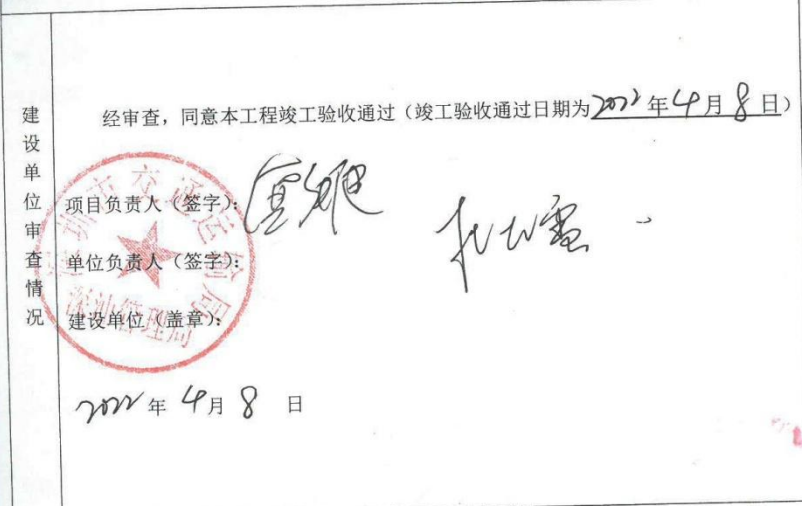 建设单位审查情况
经审查，同意本工程竣工验收通过（竣工验收通过日期为2022年4月8日）
项目负责人（签字）：
单位负责人（签字）：
建设单位（盖章）：
深圳市交通运输局
深汕管理局
2022年4月8日